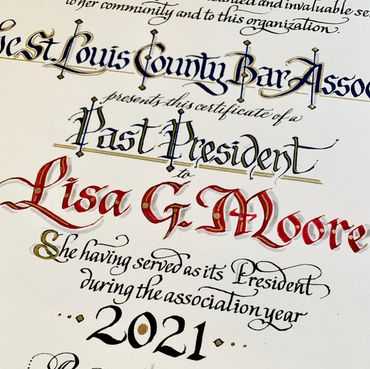 and invaluable se
to her community and to this organization.
St. Louis County Bar Assoc
presents this certificate of a
Past President
to
Lisa G. Moore
She having served as its President
during the association year
2021